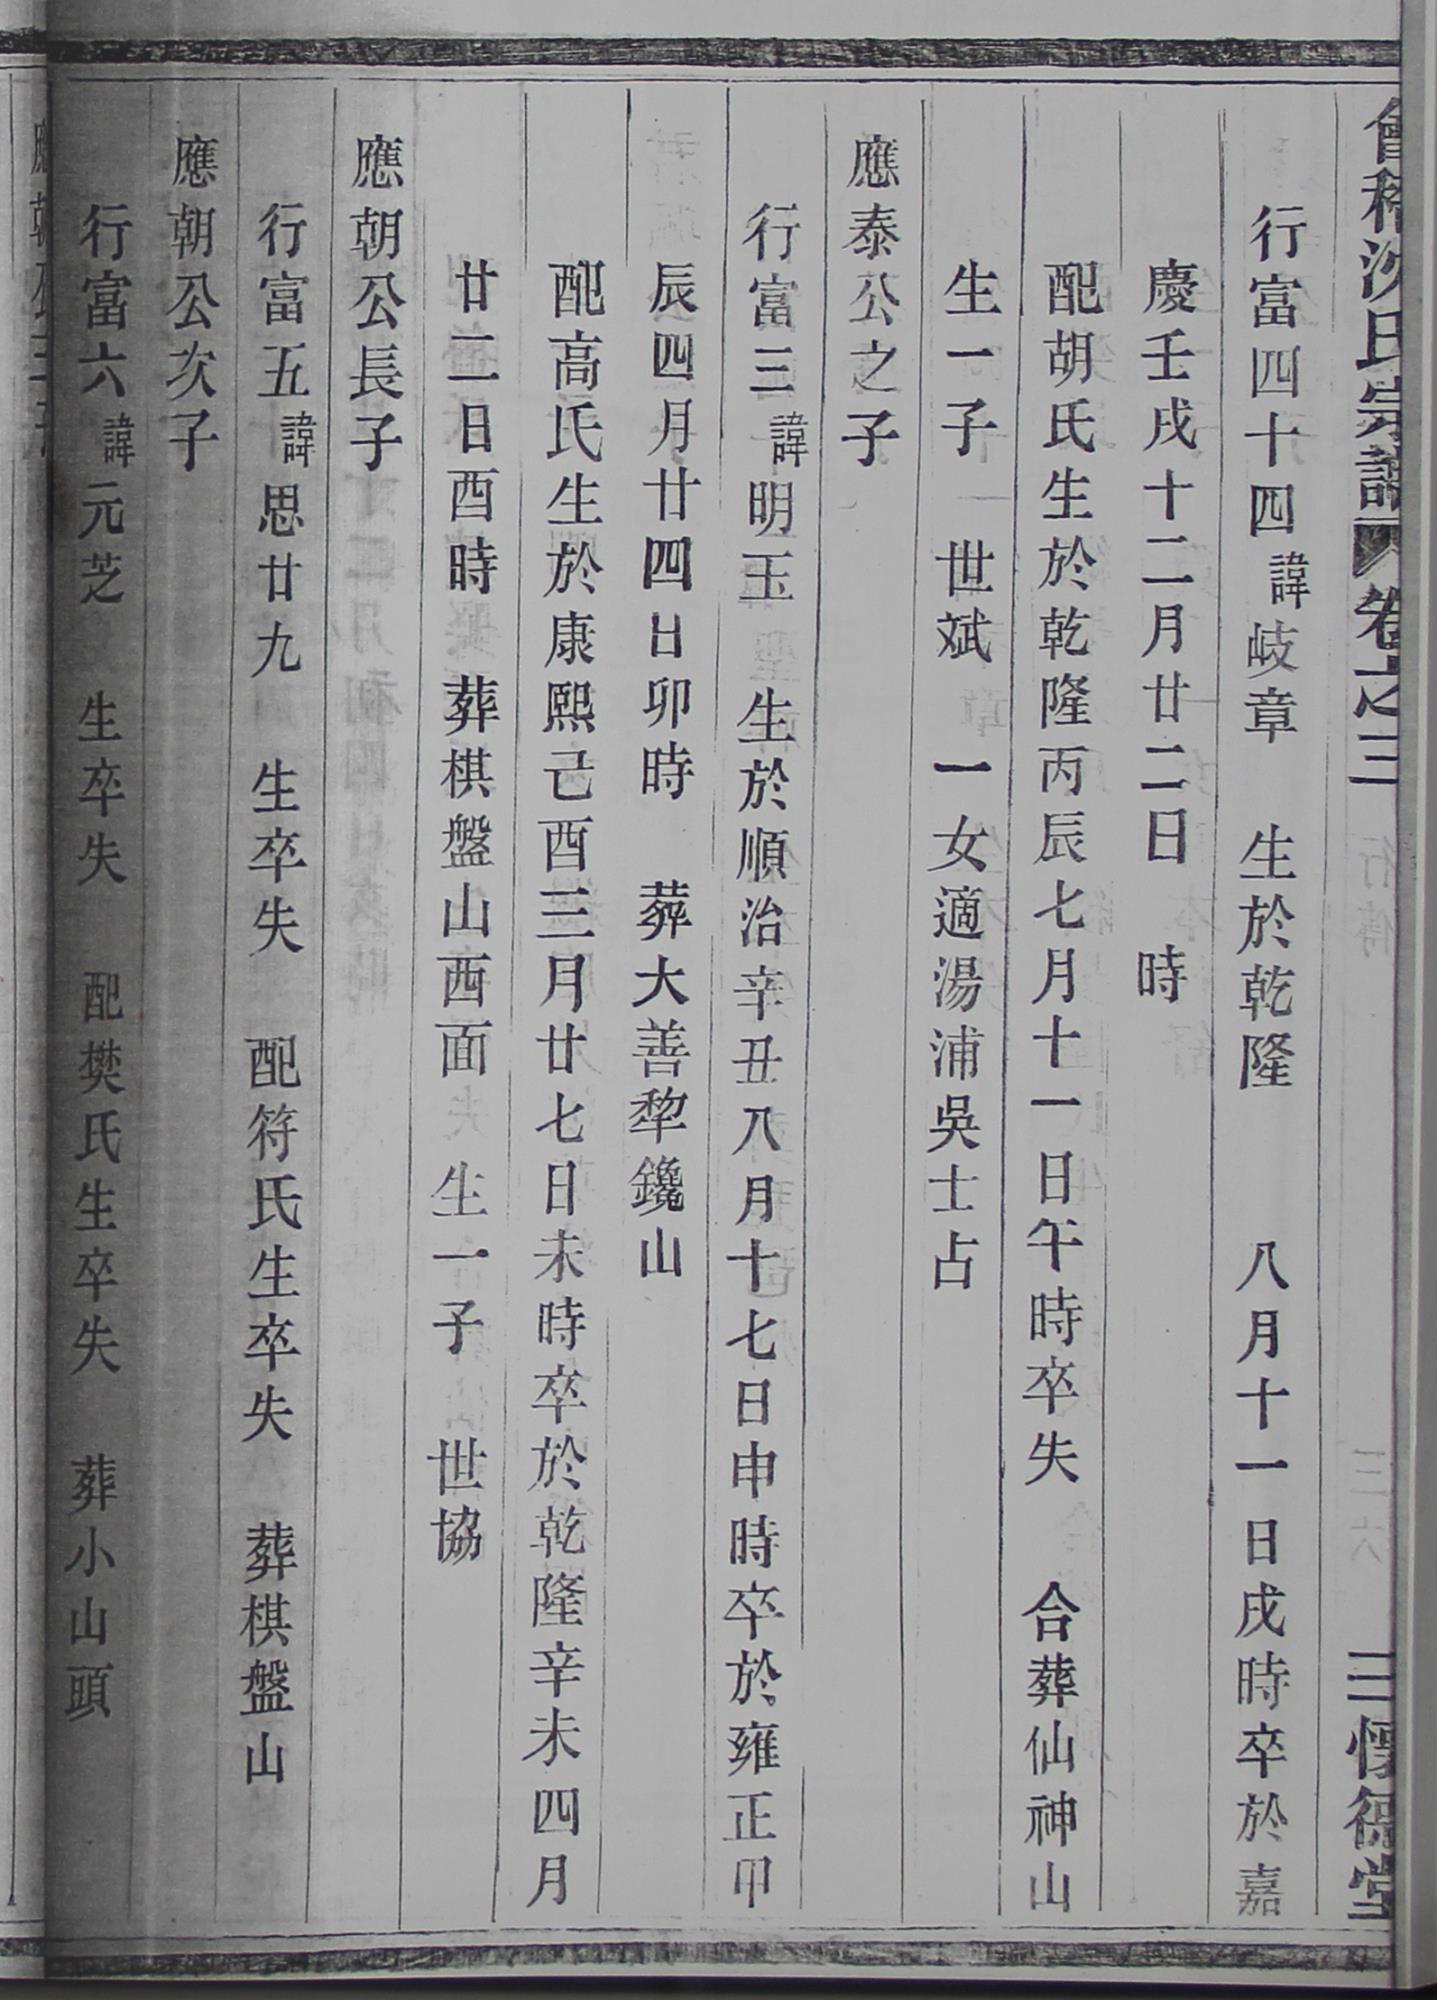 會稽沈氏宗譜 卷之三 三 懷德堂
行富四十四諱岐章 生於乾隆 八月十一日戌時卒於嘉
慶壬戌十二月廿二日 時
配胡氏生於乾隆丙辰七月十一日午時卒失 合葬仙神山
生一子 世斌 一女適湯浦吳士占
應泰公之子
行富三諱明玉 生於順治辛丑八月十七日申時卒於雍正甲
辰四月廿四日卯時 葬大善犂鑱山
配高氏生於康熙己酉三月廿七日未時卒於乾隆辛未四月
廿二日酉時 葬棋盤山西面 生一子 世協
應朝公長子
行富五諱思廿九 生卒失 配符氏生卒失 葬棋盤山
應朝公次子
行富六諱元芝 生卒失 配樊氏生卒失 葬小山頭